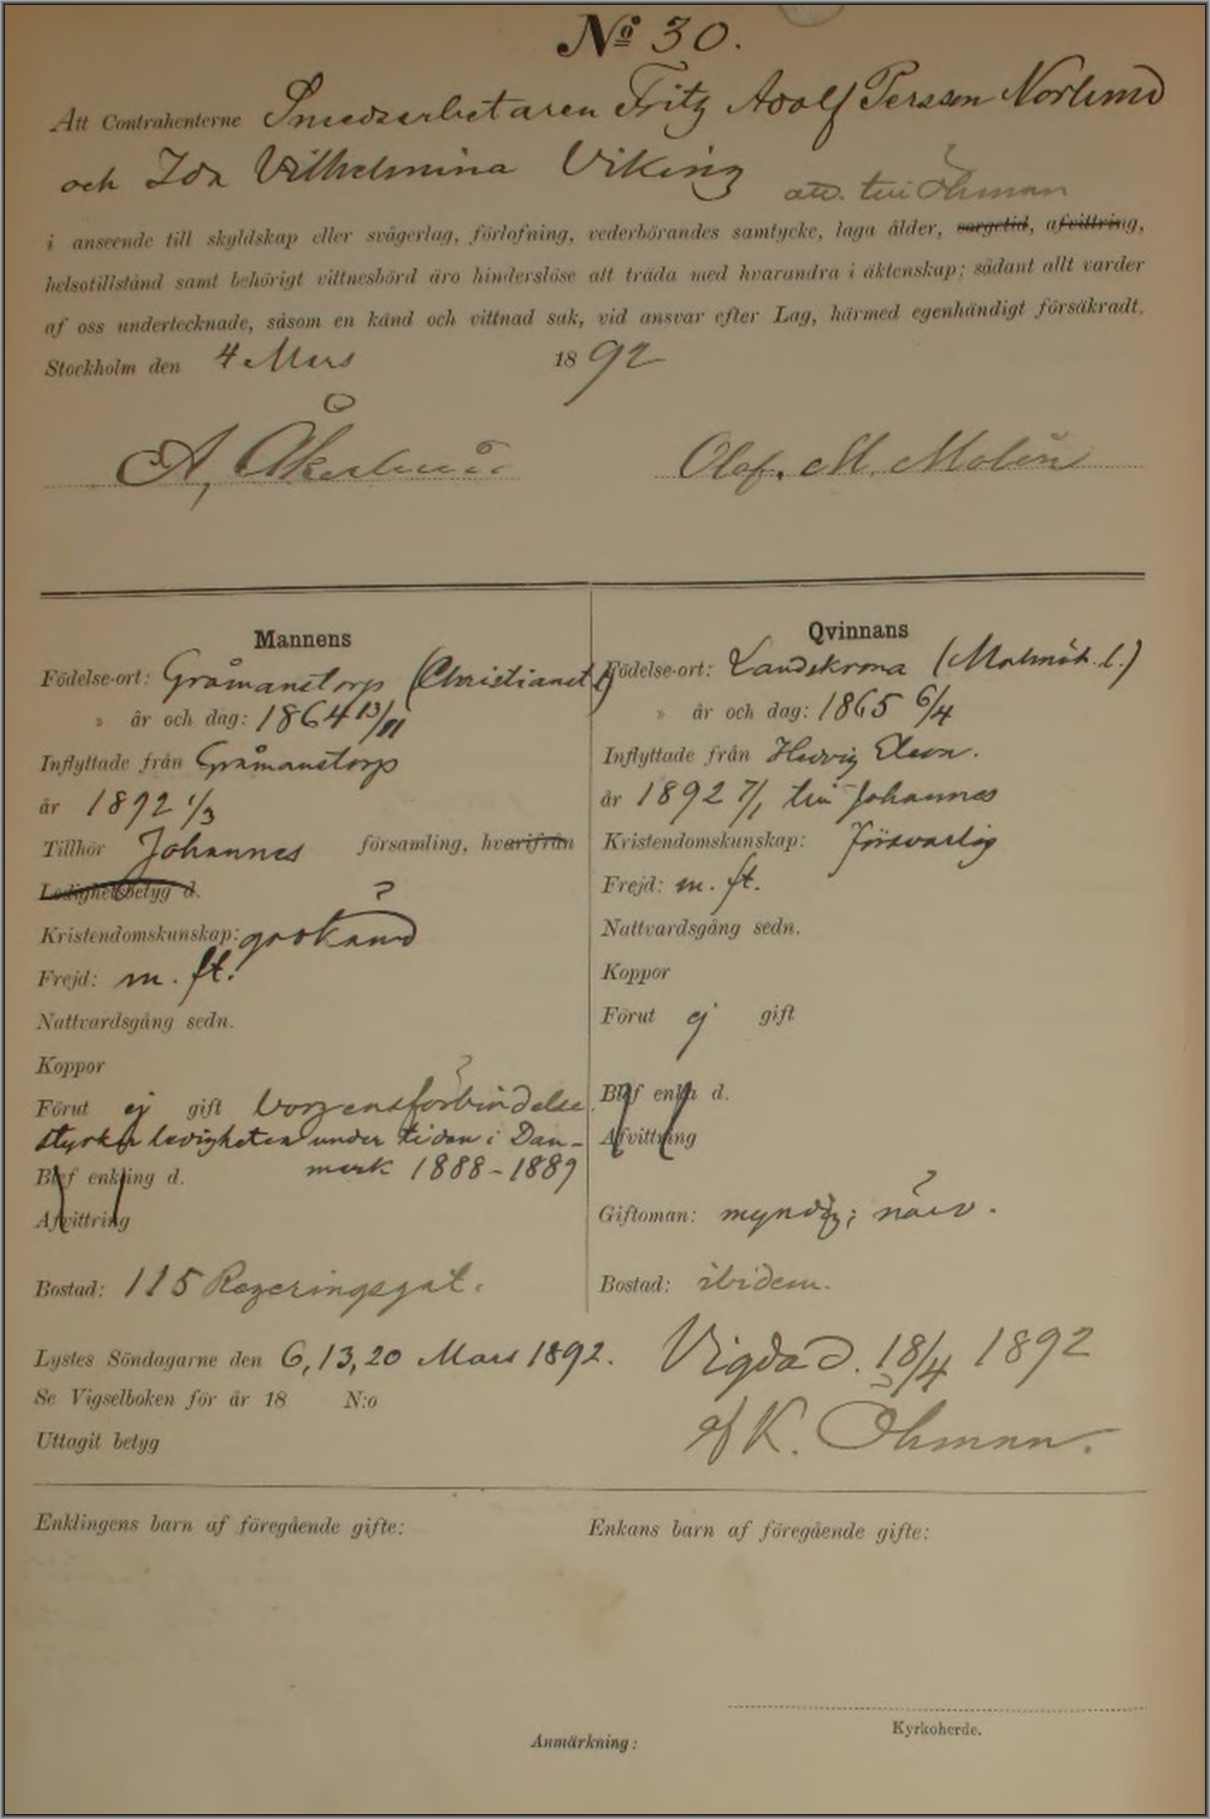 No 30.
Att Contrahenterne Smedsarbetaren Fritz Adolf Persson Norlund
och Ida Vilhelmina Viking att. till Öhman
i anseende till skyldskap eller svågerlag, förlofning, vederbörandes samtycke, laga ålder, sorgetid, afvittring,
helsotillstånd samt behörigt vittnesbörd äro hinderslöse att träda med hvarandra i äktenskap; sådant allt varder
af oss undertecknade, såsom en känd och vittnad sak, vid ansvar efter Lag, härmed egenhändigt försäkradt.
Stockholm den 4 Mars 1892
A, Åkerlund
Olof. M. Molin
Mannens
Födelse-ort: Gråmanstorp (Christianst. l)
» år och dag: 1864 13/11
Inflyttade från Gråmanstorp
år 1892 1/3
Tillhör Johannes församling, hvarifrån
Ledighetsbetyg d.
Kristendomskunskap: godkänd
Frejd: m. ft.
Nattvardsgång sedn.
Koppor
Förut ej gift Borgensförbindelse
styrker ledigheten under tiden i Dan-
mark 1888-1889
Blef enkling d.
Afvittring
Bostad: 115 Regeringsgat.
Qvinnans
Födelse-ort: Landskrona (Malmöh. l.)
» år och dag: 1865 6/4
Inflyttade från Hedvig Eleon.
år 1892 7/1 till Johannes
Kristendomskunskap: försvarlig
Frejd: m. ft.
Nattvardsgång sedn.
Koppor
Förut ej gift
Blef enka d.
Afvittring
Giftoman: myndig; närv.
Bostad: ibidem.
Lystes Söndagarne den 6, 13, 20 Mars 1892.
Se Vigselboken för år 18 N:o
Uttagit betyg
Vigda d. 18/4 1892
af K. Öhman.
Enklingens barn af föregående gifte:
Enkans barn af föregående gifte:
Kyrkoherde.
Anmärkning: